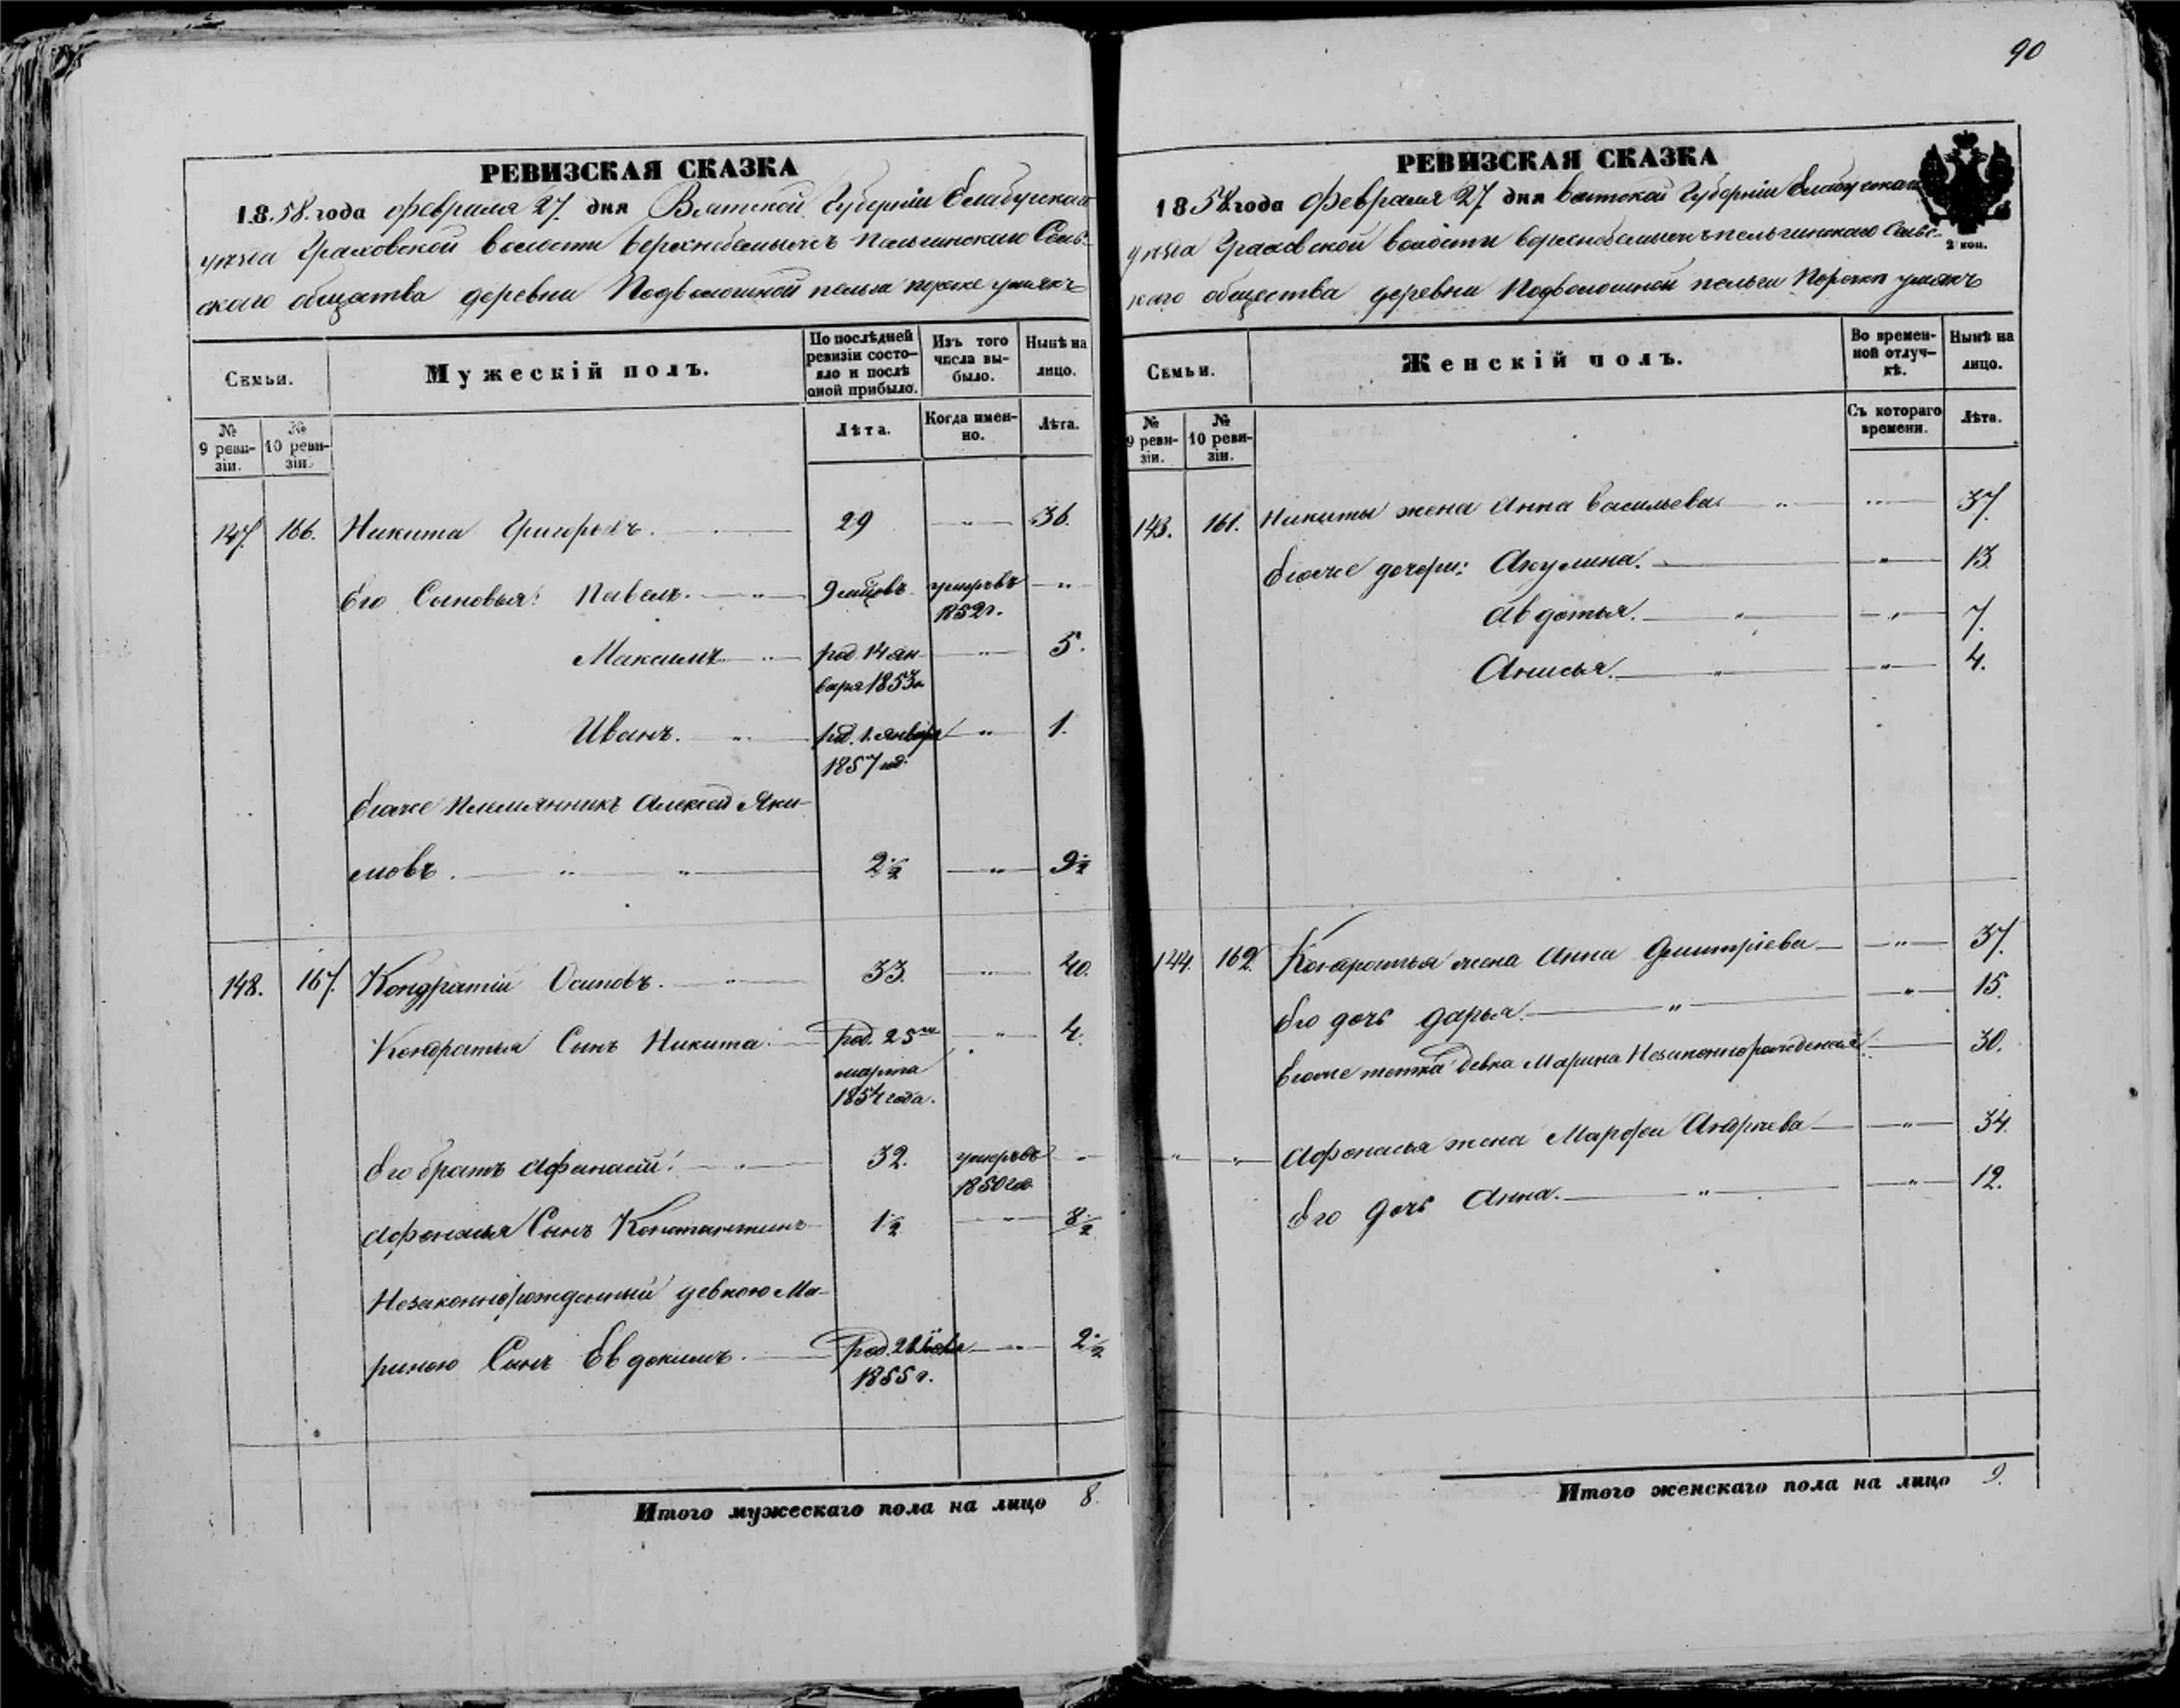 90
РЕВИЗСКАЯ СКАЗКА
1858. года февраля 27. дня Вятской Губерніи Елабугскаго
уѣзда Граховской волости Сель-
скаго общества деревни Подволошной пельга
Семьи.
Мужескій полъ.
По послѣдней ревизіи состо-
яло и послѣ оной прибыло.
Изъ того числа вы-
было.
Нынѣ на лицо.
№ 9 реви-
зіи.
№ 10 реви-
зіи.
Лѣта.
Когда имен-
но.
Лѣта.
147. 166. Никита Григорьевъ. 29 " 36.
Его Сыновья: Павелъ. " 9 умеръ въ "
1852 г.
Максимъ " род. 14 ян- " 5.
варя 1853 г.
Иванъ. " род. 1. января " 1.
1857 год.
Его же Племянникъ Алексей Яки-
мовъ. " " 2 ½ " 9 ½
148. 167. Кондратій Осиповъ. " 33. " 40.
Кондратья Сынъ Никита. род. 25 го " 4.
марта
1854 года.
Его братъ Афанасій. " 32. умеръ въ "
1850 год.
Афанасья Сынъ Константинъ 1 ½ " 8 ½
Незаконнорожденный девкою Ма-
риною Сынъ Евдокимъ. род. " 2 ½
1855 г.
Итого мужескаго пола на лицо 8.
РЕВИЗСКАЯ СКАЗКА
1858. года февраля 27. дня Вятской Губерніи Елабугскаго
уѣзда Граховской волости Сельс-
каго общества деревни Подволошной пельги
2 коп.
Семьи.
Женскій полъ.
Во времен-
ной отлуч-
кѣ.
Нынѣ на лицо.
№ 9 реви-
зіи.
№ 10 реви-
зіи.
Съ котораго времени.
Лѣта.
143. 161. Никиты жена Анна Васильева. " " 37.
Его же дочери: Акулина. " 13.
Авдотья. " " 7.
Анисья. " " 4.
144. 162. Кондратья жена Анна Дмитріева " 37.
Его дочь Дарья. " " 15.
Его же тетка девка Марина Незаконнорожденная 30.
" " Афонасья жена Марфа Андреева " 34.
Его Дочь Анна. " " 12.
Итого женскаго пола на лицо 9.